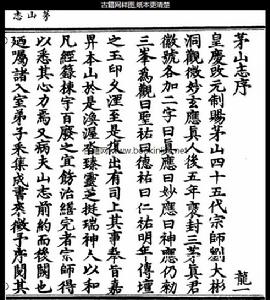 古籍网样图,纸本更清楚
茅山志
茅山志序
龍一
皇慶改元制賜茅山四十五代宗師劉大彬
洞觀微妙玄應真人後五年褒封三茅真君
徽號各加二字曰真應曰妙應曰神應仍勅
三峯為觀曰聖祐曰德祐曰仁祐明年傳壇
之玉印久湮至是復出有司上其事奉旨嘉
畀本山於是渙渥沓臻靈芝挺瑞神人以和
凡經籙棟宇百廢之宜飭治繕完者宗師得
以悉其心力焉又病夫山志前約而後闕也
廼囑諸入室弟子采集成書奉徵予序閱其